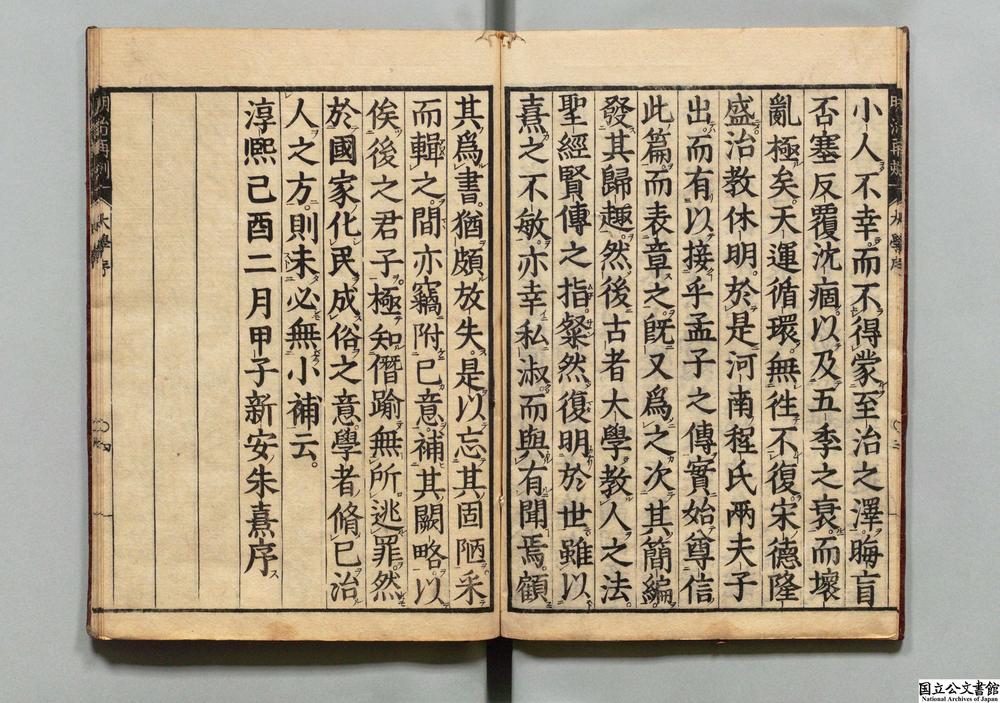 小人不幸而不得蒙至治之澤。晦盲
否塞反覆沈痼。以及五季之衰。而壞
亂極矣。天運循環。無徃不復。宋德隆
盛。治教休明。於是河南程氏兩夫子
出。而有以接乎孟子之傳。實始尊信
此篇而表章之。既又爲之次其簡編。
發其歸趣。然後古者大學教人之法。
聖經賢傳之指。粲然復明於世。雖以
熹之不敏。亦幸私淑而與有聞焉。顧
其爲書。猶頗放失。是以忘其固陋。采
而輯之。間亦竊附己意。補其闕略。以
俟後之君子。極知僭踰無所逃罪。然
於國家化民成俗之意。學者脩己治
人之方。則未必無小補云。
淳熙己酉二月甲子新安朱熹序
大學序
大學序
国立公文書館
National Archives of Japan